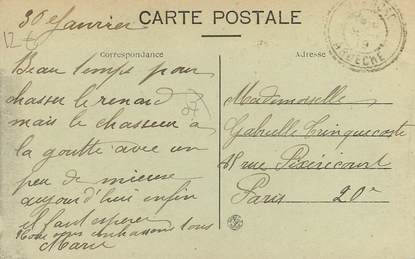 30 Janvier
12
CARTE POSTALE
Correspondance
Adresse
Beau temps pour
chasser le renard
mais le chasseur a
la goutte avec un
peu de mieux
aujourd'hui enfin
il faut espérer
vous embrassons tous
Marie
Mademoiselle
Gabrielle Trinquecoste
rue Pixéricourt
Paris 20e
ARDECHE